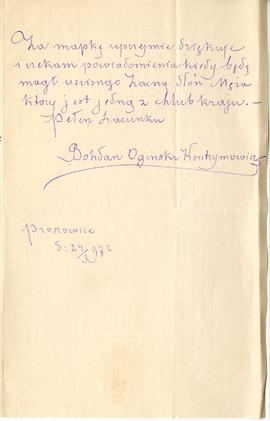 Za mapkę uprzejmie dziękuję
i czekam powiadomienia kiedy będę
mógł uścisnąć Zacną dłoń Męża
który jest jedną z chlub kraju. —
Pełen szacunku
Bohdan Ogiński Kontrymowicz
Proszowice
d: 24/X 97 r